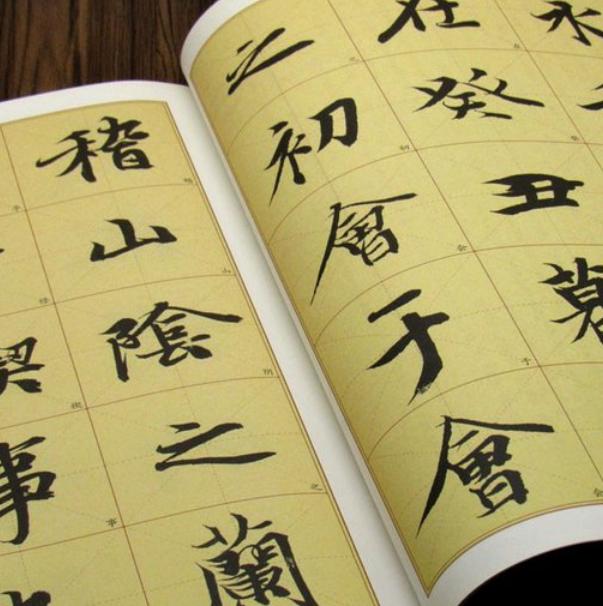 永
在癸丑暮
之初會于會
稽山陰之蘭
稧事